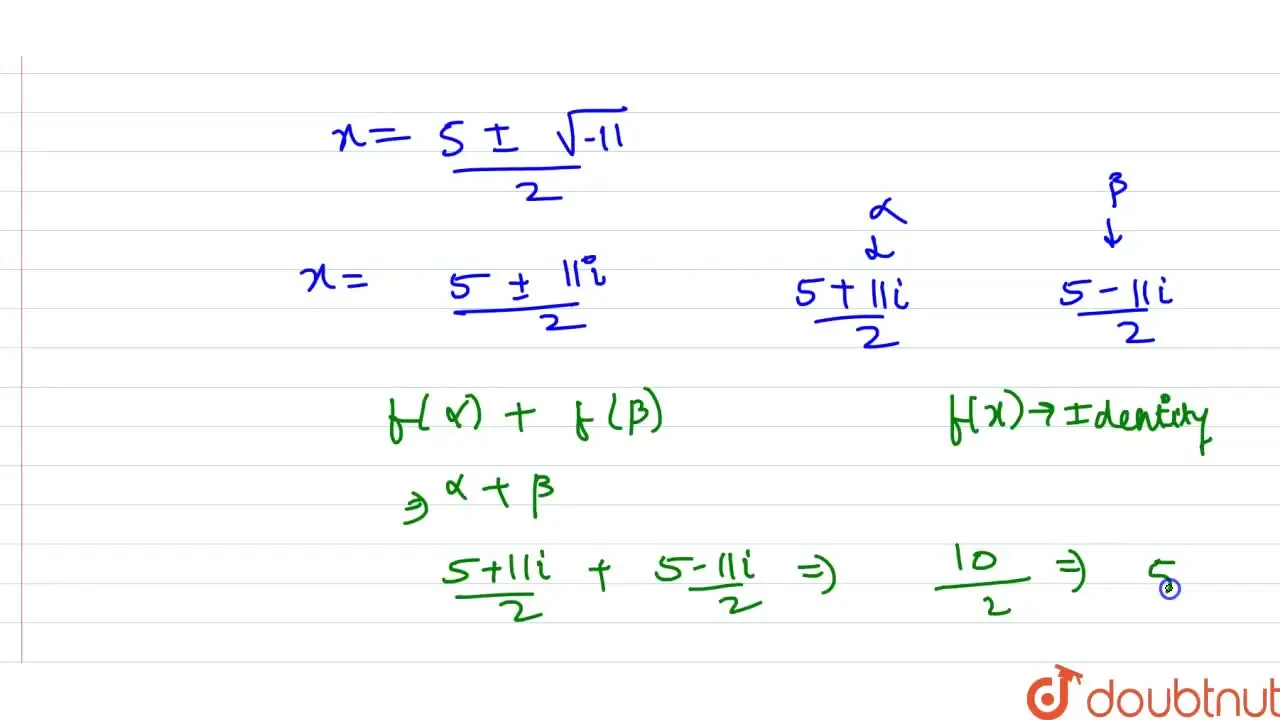 x = (5 ± √-11)/2
α β
↓ ↓
x = (5 ± 11i)/2 (5 + 11i)/2 (5 - 11i)/2
f(α) + f(β) f(x) → Identity
⇒ α + β
(5+11i)/2 + (5-11i)/2 ⇒ 10/2 ⇒ 5
doubtnut